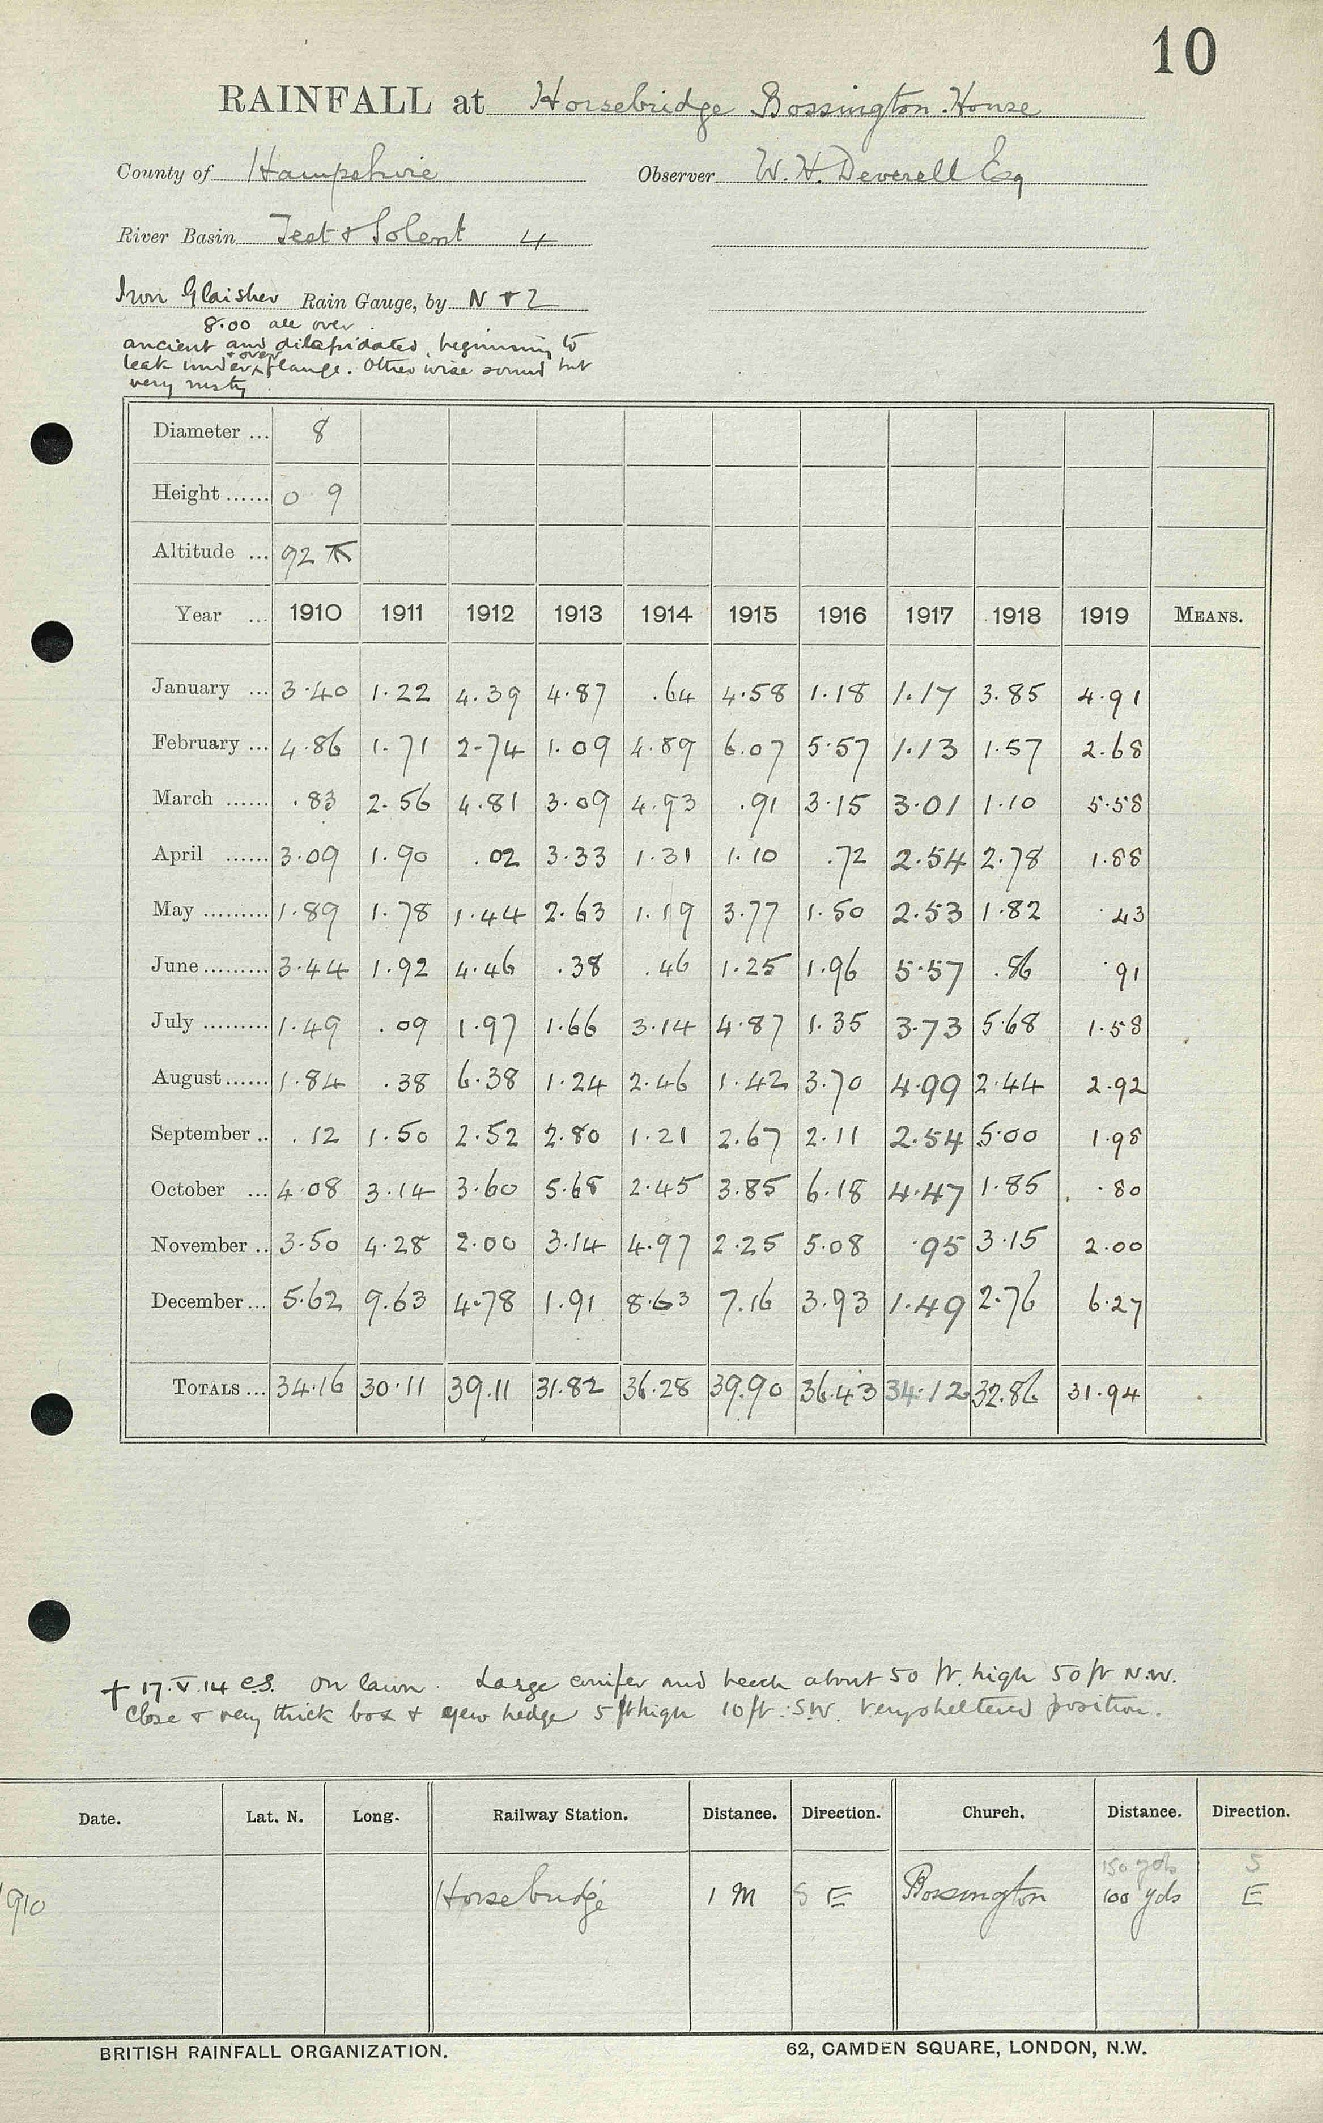 10
RAINFALL at Horsebridge Bossington House
County of Hampshire Observer W. H. Deverell Esq
River Basin Test & Solent 4
Iron Glaisher Rain Gauge, by N & Z
8.00 all over
ancient and dilapidated, beginning to
leak under & over flange. Otherwise sound but
very rusty
Diameter ... 8
Height ...... 0 9
Altitude ... 92
Year ... 1910 1911 1912 1913 1914 1915 1916 1917 1918 1919 MEANS.
January ... 3.40 1.22 4.39 4.87 .64 4.58 1.18 1.17 3.85 4.91
February ... 4.86 1.71 2.74 1.09 4.89 6.07 5.57 1.13 1.57 2.68
March ...... .83 2.56 4.81 3.09 4.93 .91 3.15 3.01 1.10 5.58
April ...... 3.09 1.90 .02 3.33 1.31 1.10 .72 2.54 2.78 1.88
May ......... 1.89 1.78 1.44 2.63 1.19 3.77 1.50 2.53 1.82 .43
June ......... 3.44 1.92 4.46 .38 .46 1.25 1.96 5.57 .86 .91
July ......... 1.49 .09 1.97 1.66 3.14 4.87 1.35 3.73 5.68 1.58
August ...... 1.84 .38 6.38 1.24 2.46 1.42 3.70 4.99 2.44 2.92
September .. .12 1.50 2.52 2.80 1.21 2.67 2.11 2.54 5.00 1.98
October ... 4.08 3.14 3.60 5.68 2.45 3.85 6.18 4.47 1.85 .80
November .. 3.50 4.28 2.00 3.14 4.97 2.25 5.08 .95 3.15 2.00
December ... 5.62 9.63 4.78 1.91 8.63 7.16 3.93 1.49 2.76 6.27
TOTALS ... 34.16 30.11 39.11 31.82 36.28 39.90 36.43 34.12 32.86 31.94
+ 17.V.14 C.S. On lawn. Large conifer and beech about 50 ft. high 50 ft N.W.
Close & very thick box & yew hedge 5 ft high 10 ft. SW. Very sheltered position.
Date. Lat. N. Long. Railway Station. Distance. Direction. Church. Distance. Direction.
150 yds S
1910 Horsebridge 1 M S E Bossington 100 yds E
BRITISH RAINFALL ORGANIZATION. 62, CAMDEN SQUARE, LONDON, N.W.